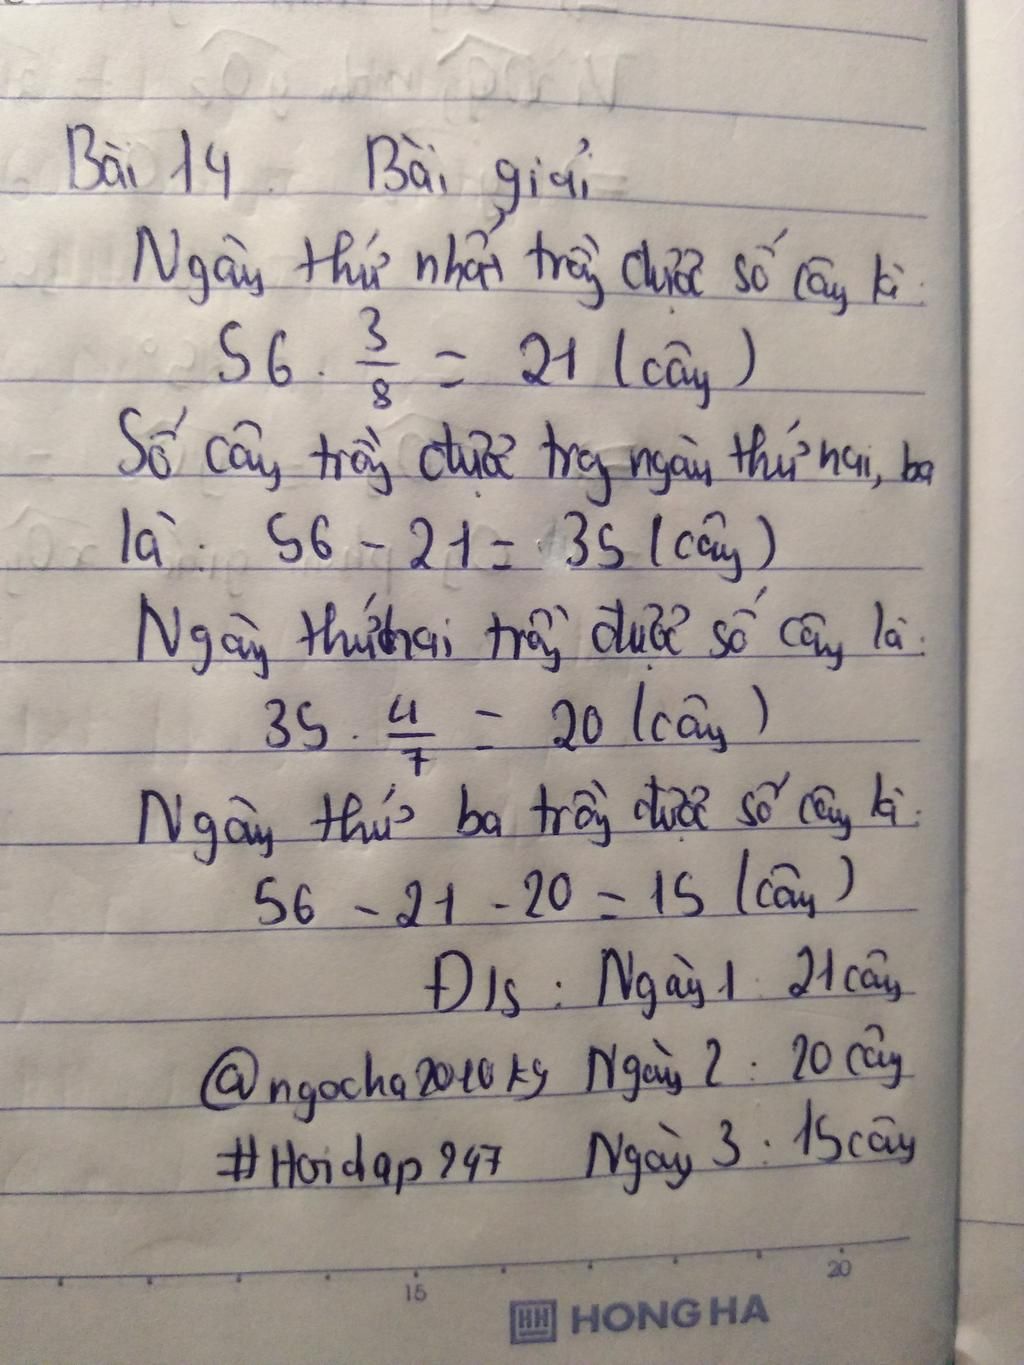 Bài 14 Bài giải
Ngày thứ nhất trồng được số cây là:
56 . 3/8 = 21 (cây)
Số cây trồng được trog ngày thứ hai, ba
là: 56 - 21 = 35 (cây)
Ngày thứ hai trồng được số cây là:
35 . 4/7 = 20 (cây)
Ngày thứ ba trồng được số cây là:
56 - 21 - 20 = 15 (cây)
Đ/s : Ngày 1 : 21 cây
@ngocha2010ky Ngày 2 : 20 cây
#Hoidap247 Ngày 3 : 15 cây
15 20
HH HONG HA